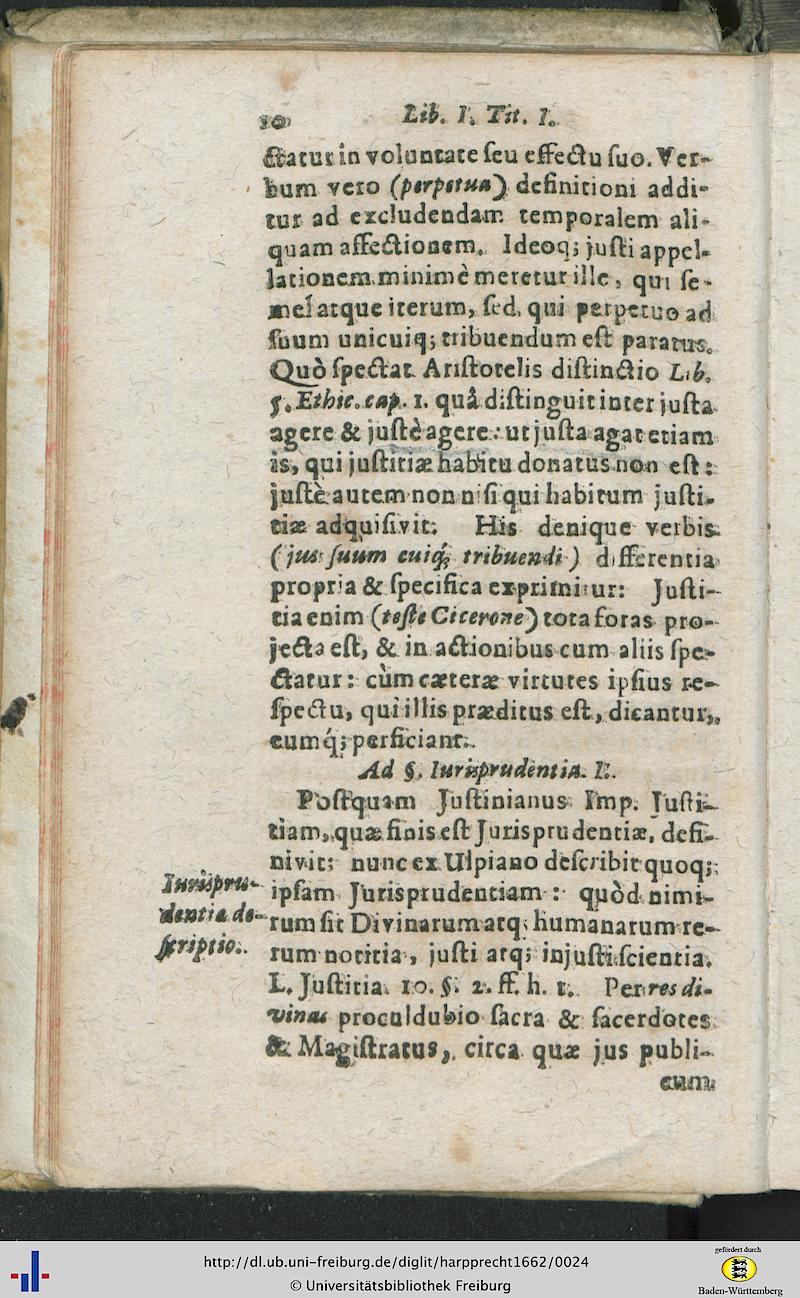 10 Lib. I. Tit. I.
ctatur in voluntate ſeu effectu ſuo. Ver-
bum vero (perpetua) definitioni addi-
tur ad excludendam temporalem ali-
quam affectionem. Ideoq; juſti appel-
lationem minimè meretur ille, qui ſe-
mel atque iterum, ſed qui perpetuo ad
ſuum unicuiq; tribuendum eſt paratus.
Quò ſpectat Ariſtotelis diſtinctio Lib.
5. Ethic. cap. 1. quâ diſtinguit inter juſta
agere & juſtè agere: ut juſta agat etiam
is, qui juſtitiæ habitu donatus non eſt:
juſtè autem non niſi qui habitum juſti-
tiæ adquiſivit: His denique verbis
(jus ſuum cuiq́; tribuendi) differentia
propria & ſpecifica exprimitur: Juſti-
tia enim (teſte Cicerone) tota foras pro-
jecta eſt, & in actionibus cum aliis ſpe-
ctatur: cùm cæteræ virtutes ipſius re-
ſpectu, qui illis præditus eſt, dicantur,
eumq́; perficiant.
Ad §. Iurisprudentia. I.
Poſtquam Juſtinianus Imp. Juſti-
tiam, quæ finis eſt Jurisprudentiæ, defi-
nivit; nunc ex Ulpiano deſcribit quoq;
ipſam Jurisprudentiam: quòd nimi-
rum ſit Divinarum atq; humanarum re-
rum notitia, juſti atq; injuſti ſcientia.
L. Juſtitia. 10. §. 2. ff. h. t. Per res di-
vinas proculdubio ſacra & ſacerdotes
& Magiſtratus, circa quæ jus publi-
cum
Iurispru-
dentia de-
ſcriptio.
http://dl.ub.uni-freiburg.de/diglit/harpprecht1662/0024
© Universitätsbibliothek Freiburg
gefördert durch
Baden-Württemberg